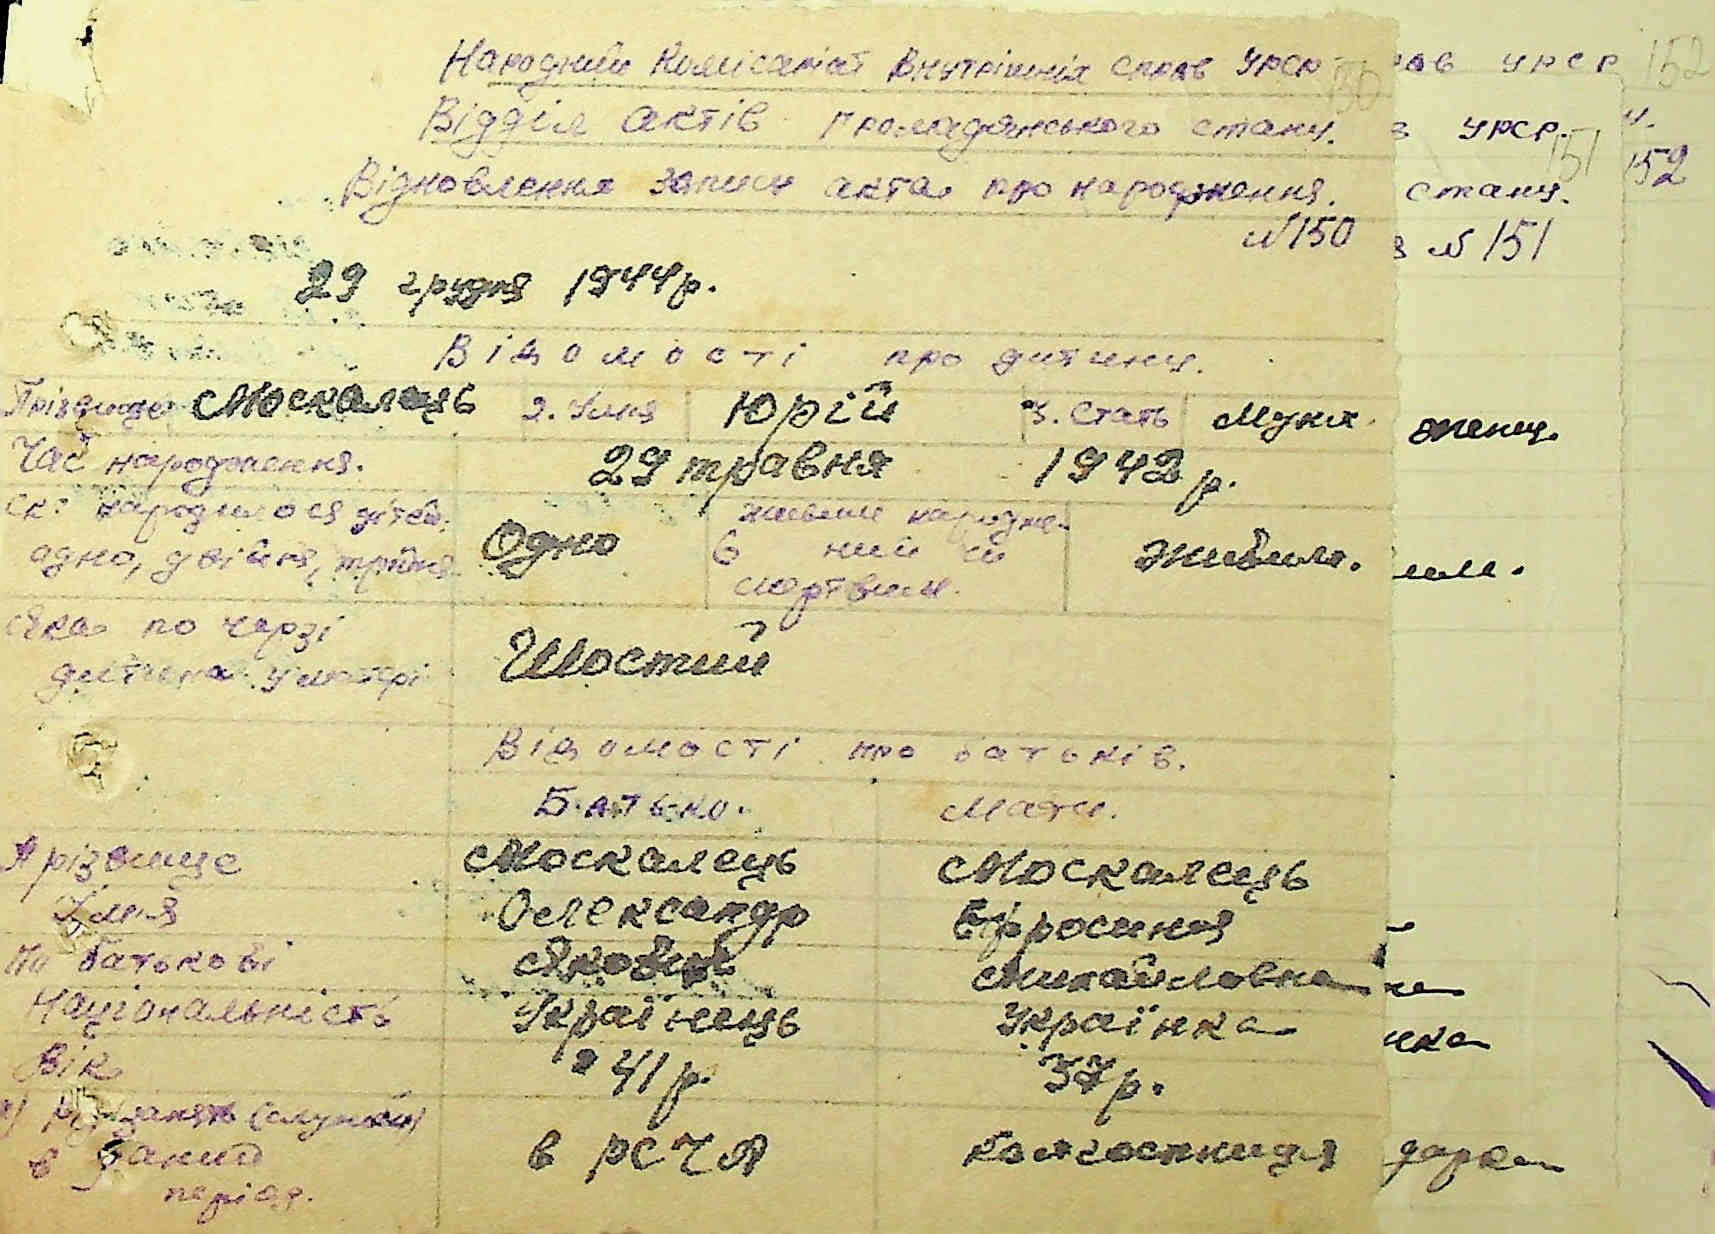 Народний Комісаріат Внутрішніх Справ УРСР 150
Відділ актів громадянського стану.
Відновлення запису акта про народження.
№150
29 грудня 1944 р.
Відомості про дитину.
Прізвище Москалець 2. Імня Юрій 3. Стать Мужч.
Час народження. 29 травня 1942 р.
Ск: народилося дітей:
одно, двійня, трійня Одно 6 живим народже-
ний чи
мертвим. Живим.
Яка по черзі
дитина у матері Шостий
Відомості про батьків.
Батько. Мати.
Прізвище Москалець Москалець
Імя Олександр Єфросиния
По батькові Михайловна
Національність Українець Українка
Вік 41 р. 37 р.
а) Рід занять (служби)
в даний
період. в РСЧА колгоспниця
рав УРСР 152
УРСР. 151
152
стану.
№ 151
женщ.
им.
на
нка
дарка